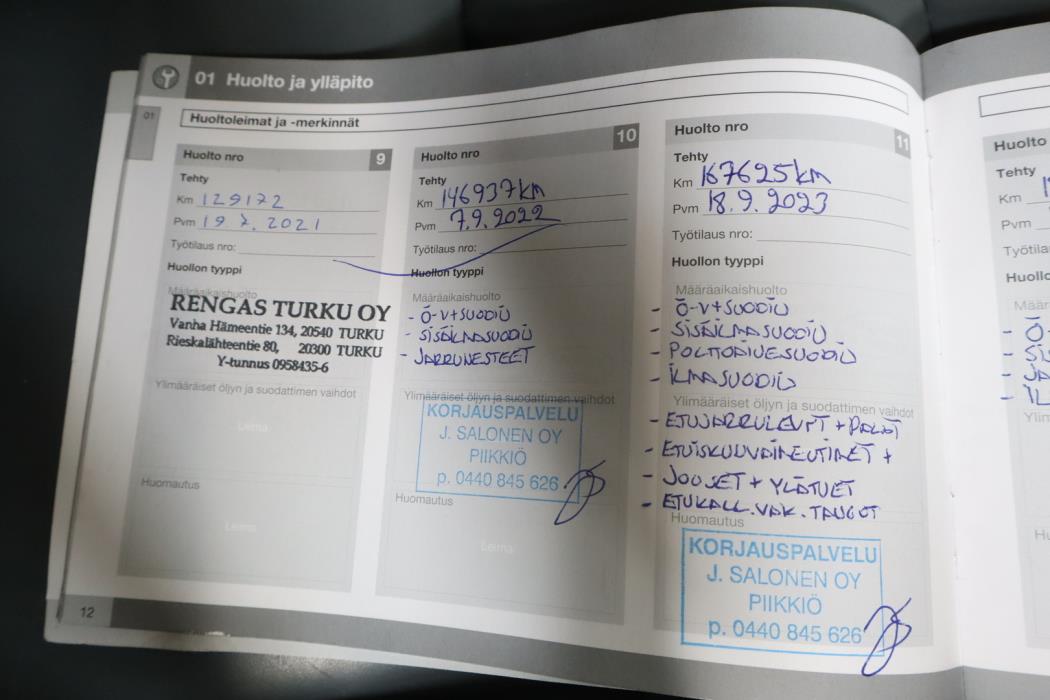 01 Huolto ja ylläpito
01
Huoltoleimat ja -merkinnät
Huolto nro 9
Tehty
Km 129172
Pvm 19.7.2021
Työtilaus nro:
Huollon tyyppi
Määräaikaishuolto
RENGAS TURKU OY
Vanha Hämeentie 134, 20540 TURKU
Rieskalähteentie 80, 20300 TURKU
Y-tunnus 0958435-6
Ylimääräiset öljyn ja suodattimen vaihdot
Leima
Huomautus
Leima
12
Huolto nro 10
Tehty
Km 146937km
Pvm 7.9.2022
Työtilaus nro:
Huollon tyyppi
Määräaikaishuolto
- Ö-V+SUOD.
- SISÄILMASUOD.
- JARRUNESTEET
Ylimääräiset öljyn ja suodattimen vaihdot
KORJAUSPALVELU
J. SALONEN OY
PIIKKIÖ
p. 0440 845 626
Huomautus
Leima
Huolto nro 11
Tehty
Km 167625km
Pvm 18.9.2023
Työtilaus nro:
Huollon tyyppi
Määräaikaishuolto
- Ö-V+SUOD.
- SISÄILMASUOD.
- POLTTOAINESUOD.
- ILMASUOD.
Ylimääräiset öljyn ja suodattimen vaihdot
- ETUJARRULEVYT + PALAT
- ETUISKUNVAIMENTIMET +
- JOUSET + YLÄTUET
- ETUKALL.VAK.TANGOT
Huomautus
KORJAUSPALVELU
J. SALONEN OY
PIIKKIÖ
p. 0440 845 626
Huolto
Tehty
Km
Pvm